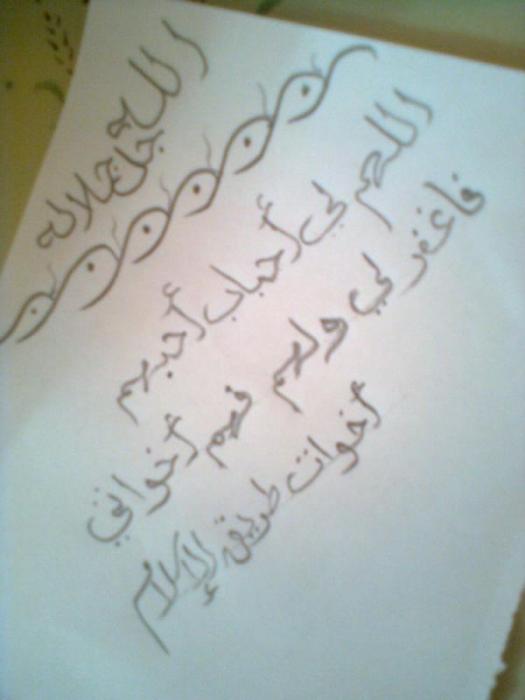 الله
جل جلاله
اللهم لي أحباب أحبهم
فاغفر لي ولهم فهم أخواني
أخوات طريق الإسلام